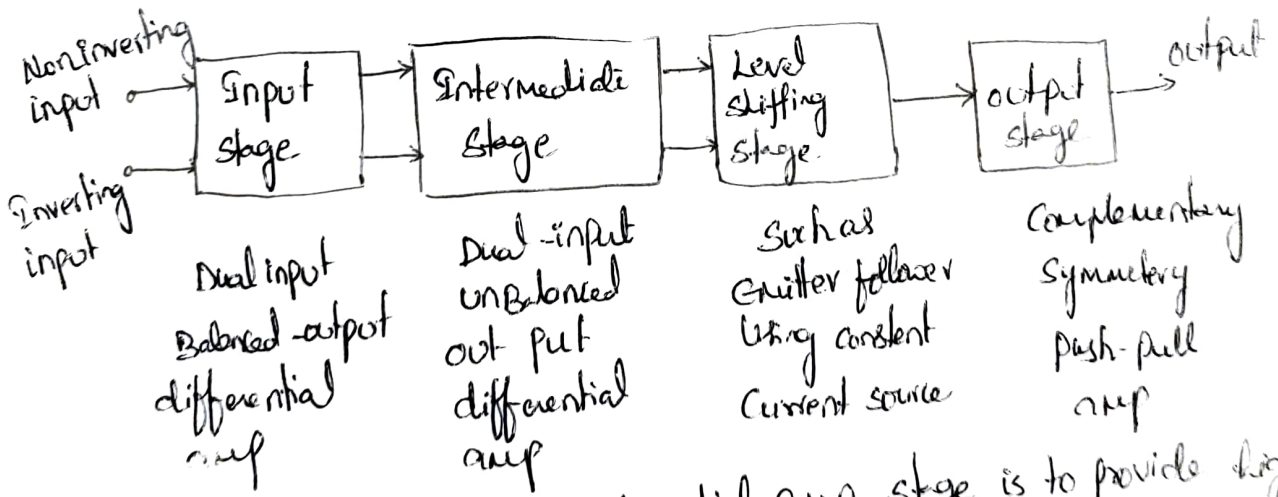 Noninverting
input
Inverting
input
Input
stage
Intermediate
stage
Level
shiffing
stage
output
stage
output
Dual input
Balanced-output
differential
amp
Dual-input
unBalanced
out put
differential
amp
Such as
Emitter follower
Using constent
Current source
Complementary
Symmetery
push-pull
amp
amp stage is to provide